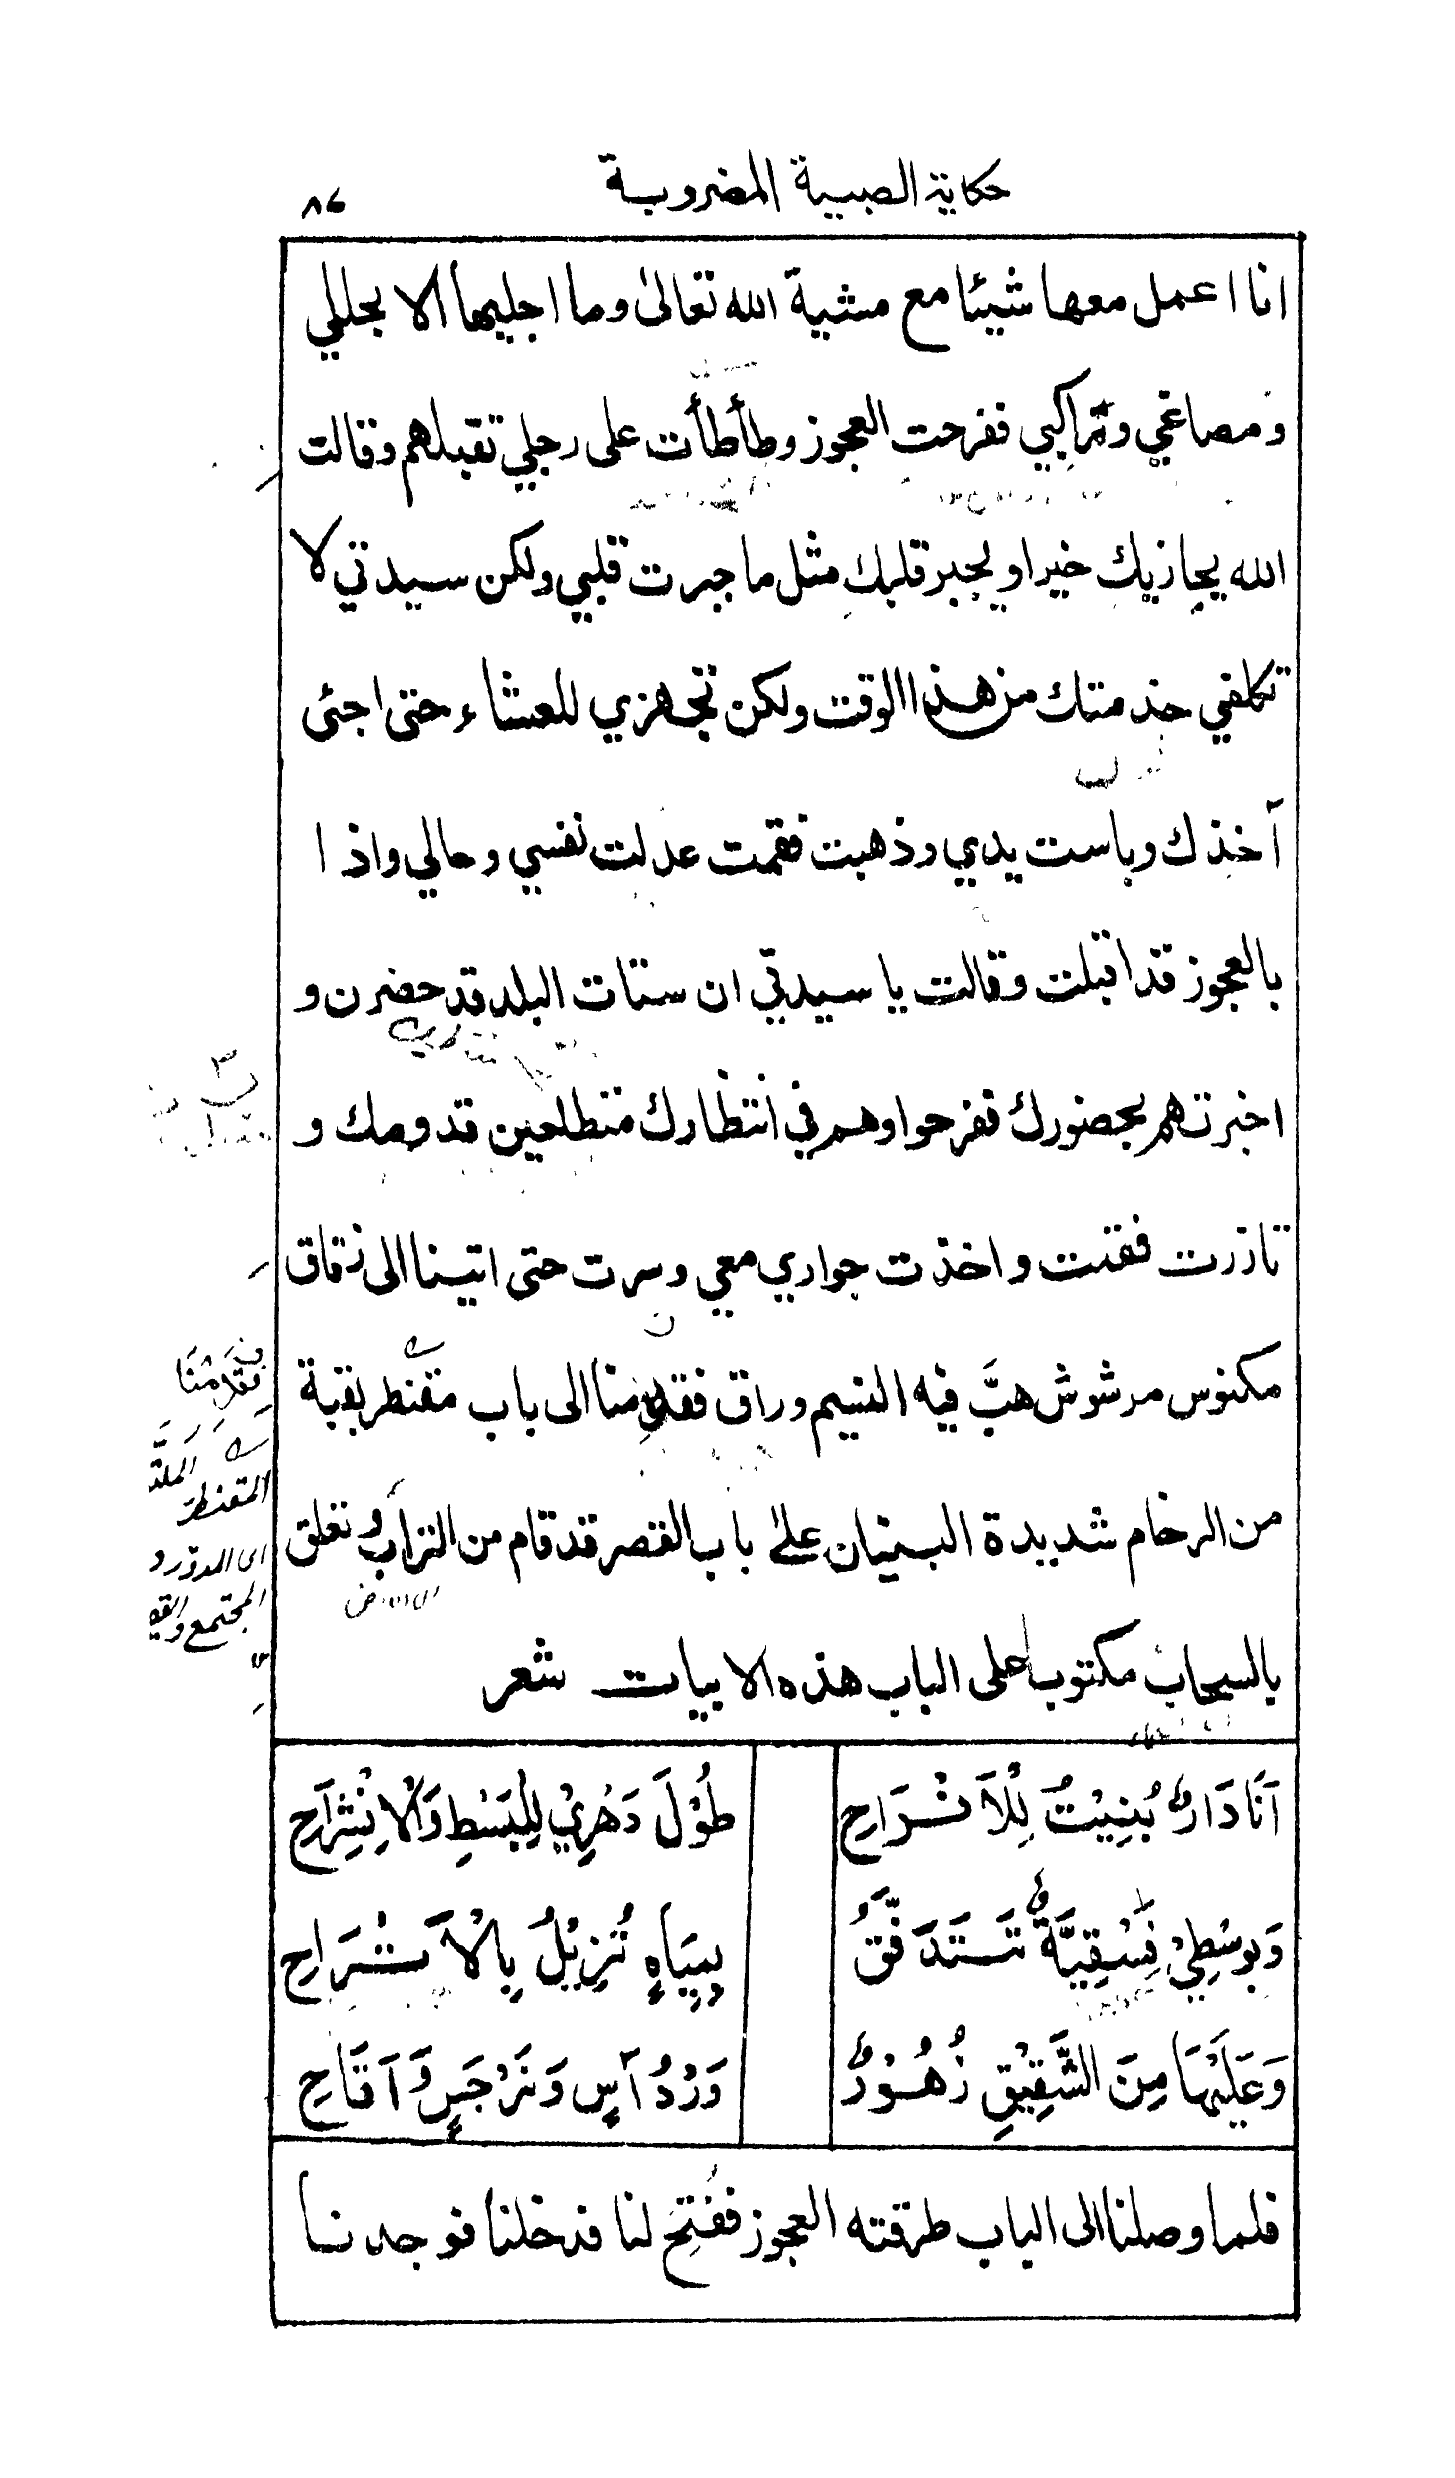 حكاية الصبية المضروبة ٨٦
انا اعمل معها شيئا مع مشية الله تعالىٰ وما اجليها الا بجللي
ومصاغي وتراكيبي ففرحت العجوز وطأطأت على رجلي تقبلهم وقالت
الله يجازيك خيرا ويجبر قلبك مثل ما جبرت قلبي ولكن سيدتي لا
تكلفي خدمتك من هذا الوقت ولكن تجهزي للعشاء حتى اجئى
آخذك وباست يدي وذهبت فقمت عدلت نفسي وحالي واذا
بالعجوز قد اقبلت وقالت يا سيدتي ان ستات البلد قد حضرن و
اخبرتهم بحضورك ففرحوا وهم في انتظارك متطلعين قدومك و
تازرت فقنت واخذت جواري معي وسرت حتى اتينا الى زقاق
مكنوس مرشوش هبَّ فيه النسيم وراق فقدمنا الى باب مقنطر بقبة
من الرخام شديدة البنيان علىٰ باب القصر قد قام من التراب وتعلق
بالسحاب مكتوبا على الباب هذه الابيات شعر
اَنَا دَارٌ بُنِيْتُ لِلْاَفْرَاحِ طُوْلَ دَهْرِيْ لِلْبَسْطِ وَالْاِنْشِرَاحِ
وَبِوسْطِيْ فَِسْقِيَّةٌ تَتَدَفَّقُ بِمِيَاهٍ تُزِيْلُ بِالْاَتْرَاحِ
وَعَلَيْهَا مِنَ الشَّقِيْقِ زُهُوْرٌ وَرْدُ آسٍ وَنَرْجَسٍ وَاَقَاحِ
فلما وصلنا الى الباب طرقته العجوز ففُتِحَ لنا فدخلنا فوجدنا
فتقدمنا
المقنطر
اى المدور و
المجتمع والقو